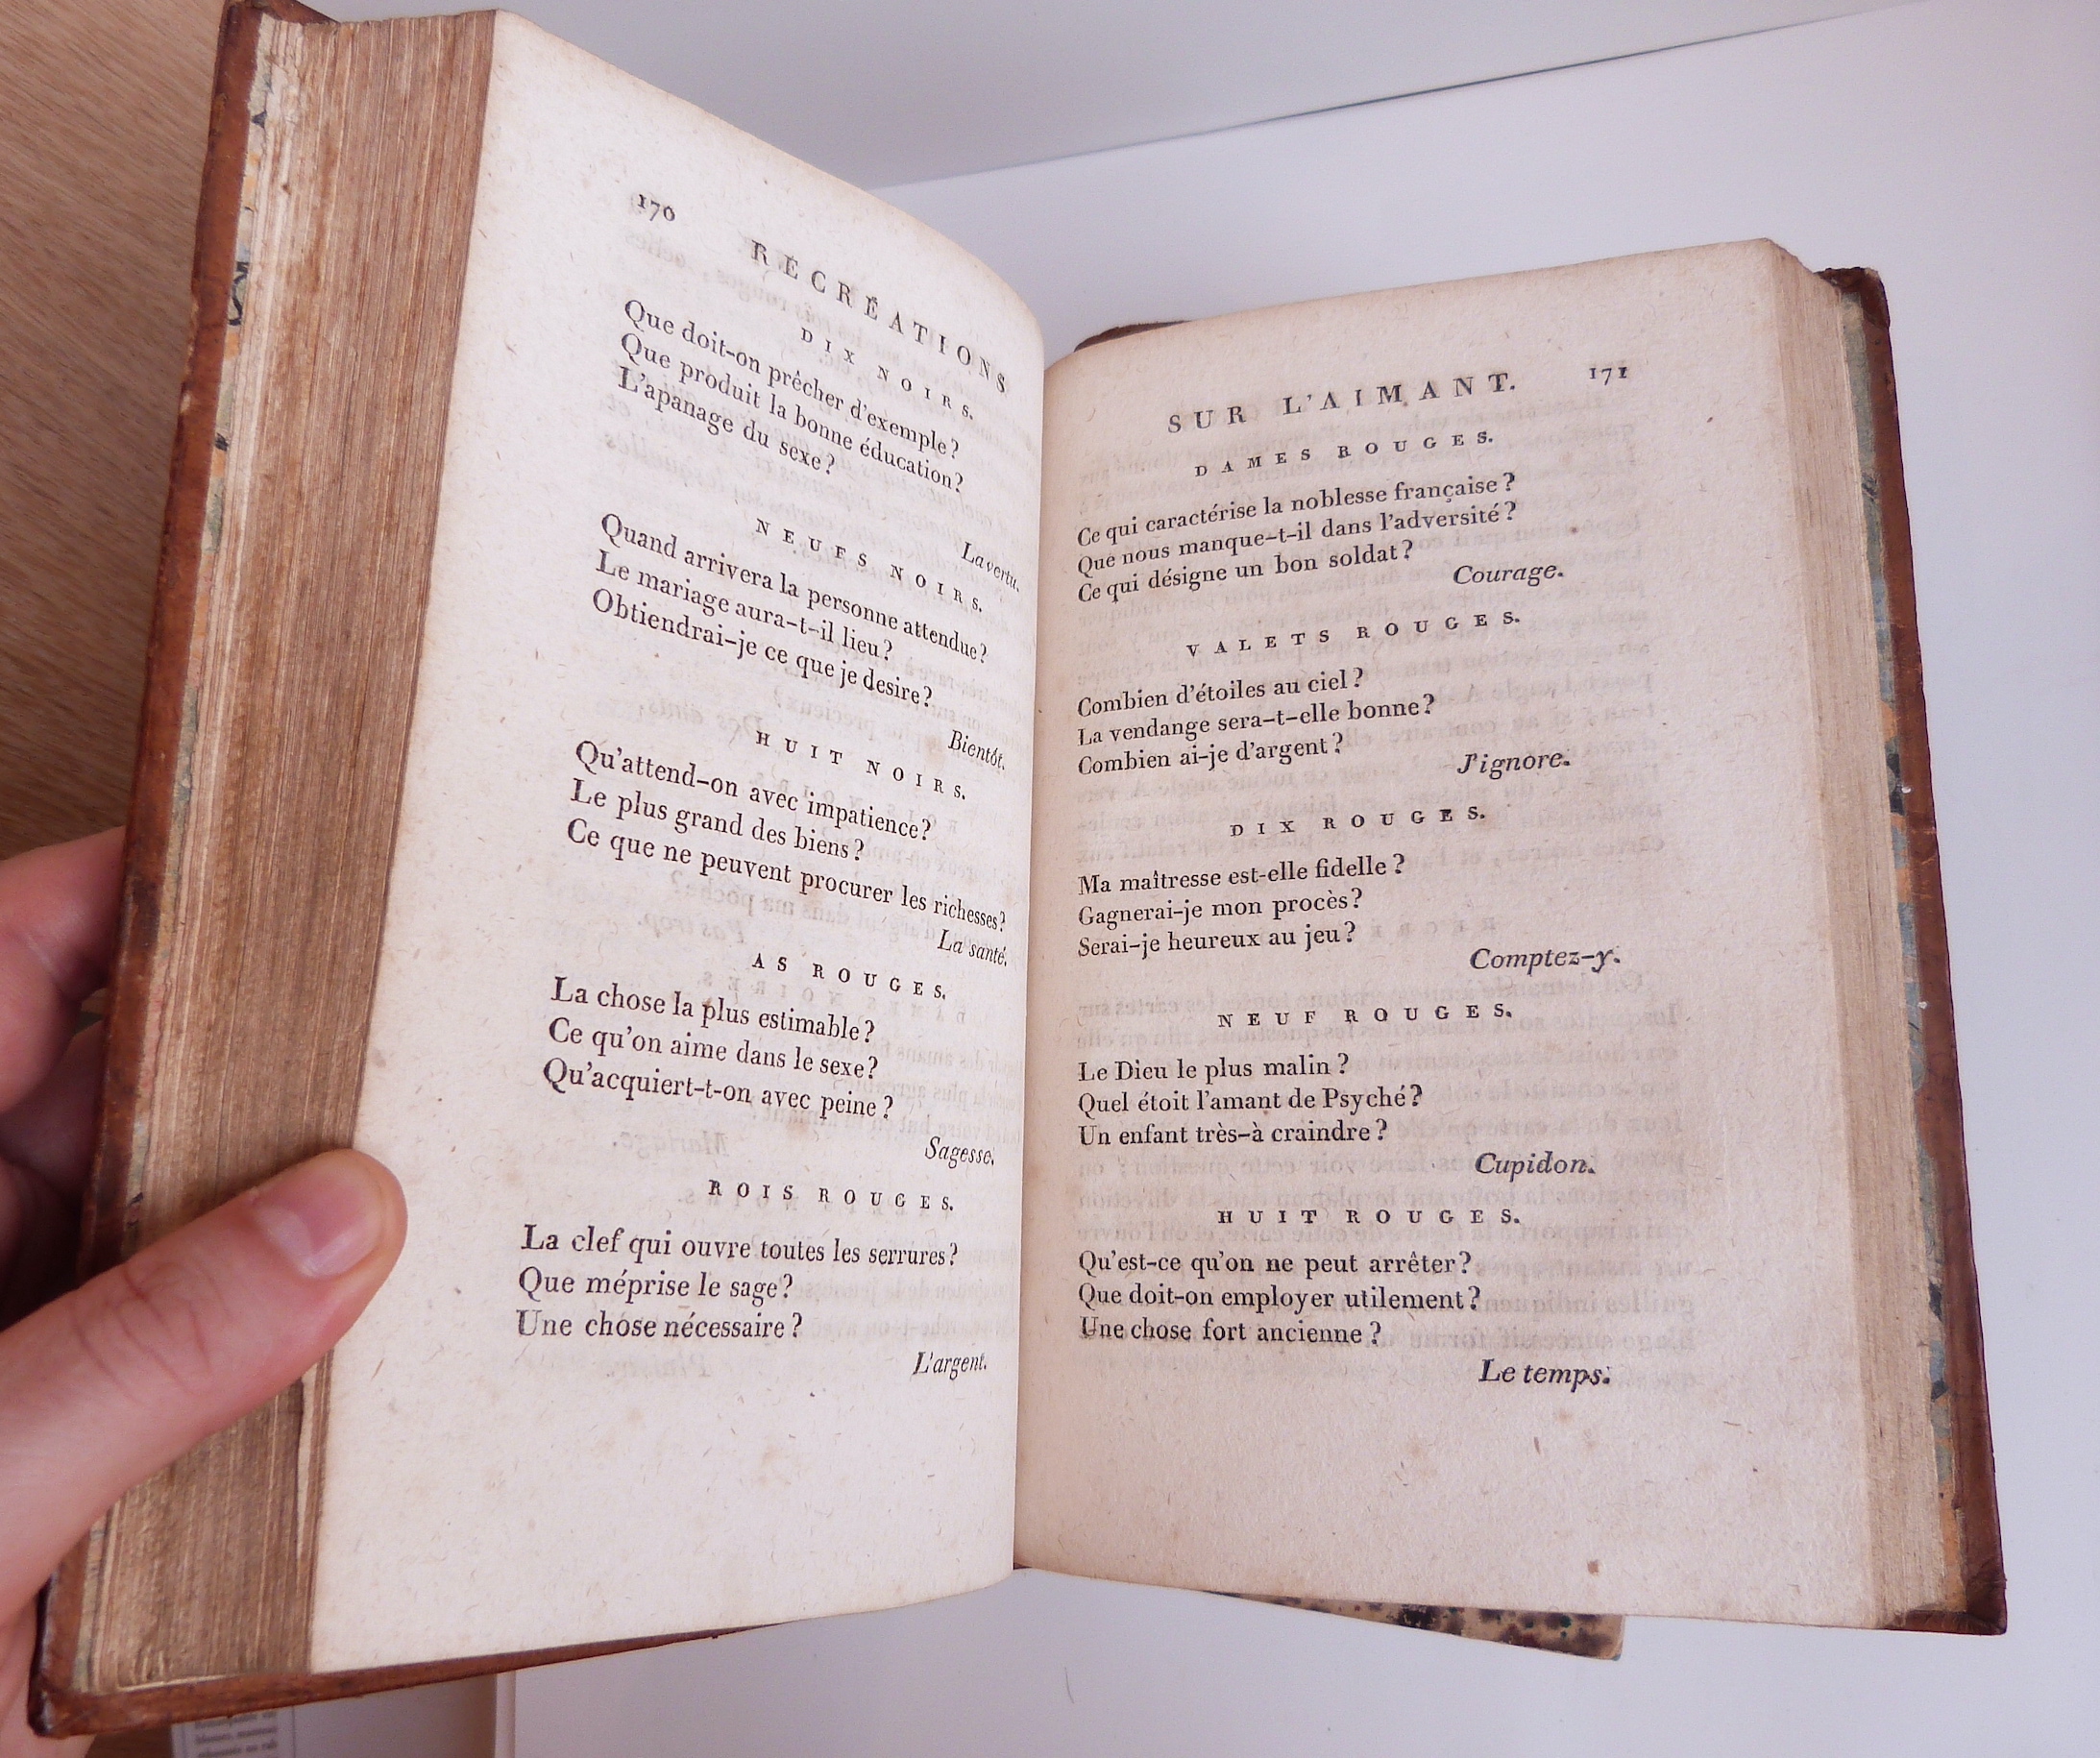 170
RÉCRÉATIONS
DIX NOIRS.
Que doit-on prêcher d'exemple?
Que produit la bonne éducation?
L'apanage du sexe?
La vertu.
NEUFS NOIRS.
Quand arrivera la personne attendue?
Le mariage aura-t-il lieu?
Obtiendrai-je ce que je desire?
Bientôt.
HUIT NOIRS.
Qu'attend-on avec impatience?
Le plus grand des biens?
Ce que ne peuvent procurer les richesses?
La santé.
AS ROUGES.
La chose la plus estimable?
Ce qu'on aime dans le sexe?
Qu'acquiert-t-on avec peine?
Sagesse.
ROIS ROUGES.
La clef qui ouvre toutes les serrures?
Que méprise le sage?
Une chose nécessaire?
L'argent.
SUR L'AIMANT. 171
DAMES ROUGES.
Ce qui caractérise la noblesse française?
Que nous manque-t-il dans l'adversité?
Ce qui désigne un bon soldat?
Courage.
VALETS ROUGES.
Combien d'étoiles au ciel?
La vendange sera-t-elle bonne?
Combien ai-je d'argent?
J'ignore.
DIX ROUGES.
Ma maîtresse est-elle fidelle?
Gagnerai-je mon procès?
Serai-je heureux au jeu?
Comptez-y.
NEUF ROUGES.
Le Dieu le plus malin?
Quel étoit l'amant de Psyché?
Un enfant très-à craindre?
Cupidon.
HUIT ROUGES.
Qu'est-ce qu'on ne peut arrêter?
Que doit-on employer utilement?
Une chose fort ancienne?
Le temps.